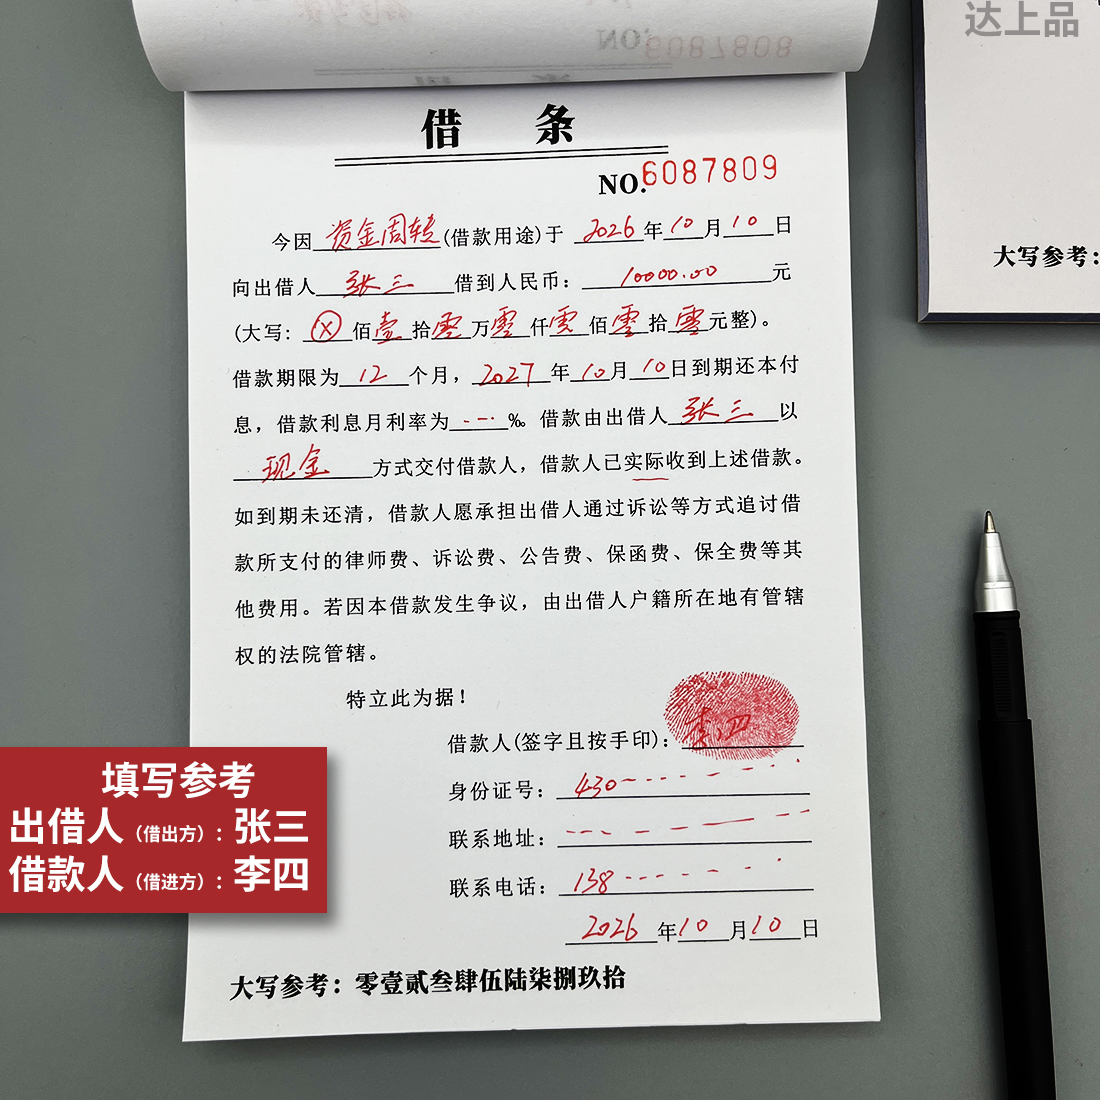 达上品
借 条
NO.6087809
今因资金周转(借款用途)于 2026年10月10日
向出借人 张三 借到人民币: 10000.00元
(大写: ⊗佰壹拾零万零仟零佰零拾零元整)。
借款期限为12个月，2027年10月10日到期还本付
息，借款利息月利率为---‰。借款由出借人张三以
现金方式交付借款人，借款人已实际收到上述借款。
如到期未还清，借款人愿承担出借人通过诉讼等方式追讨借
款所支付的律师费、诉讼费、公告费、保函费、保全费等其
他费用。若因本借款发生争议，由出借人户籍所在地有管辖
权的法院管辖。
特立此为据！
借款人(签字且按手印): 李四
身份证号: 430
联系地址:
联系电话: 138
2026年10月10日
大写参考: 零壹贰叁肆伍陆柒捌玖拾
大写参考:
填写参考
出借人（借出方）: 张三
借款人（借进方）: 李四